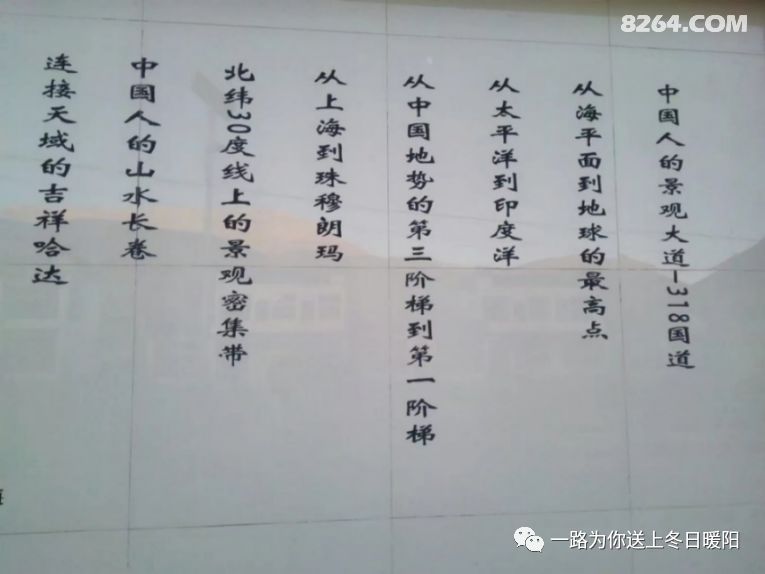 8264.COM
中国人的景观大道-318国道
从海平面到地球的最高点
从太平洋到印度洋
从中国地势的第三阶梯到第一阶梯
从上海到珠穆朗玛
北纬30度线上的景观密集带
中国人的山水长卷
连接天域的吉祥哈达
一路为你送上冬日暖阳